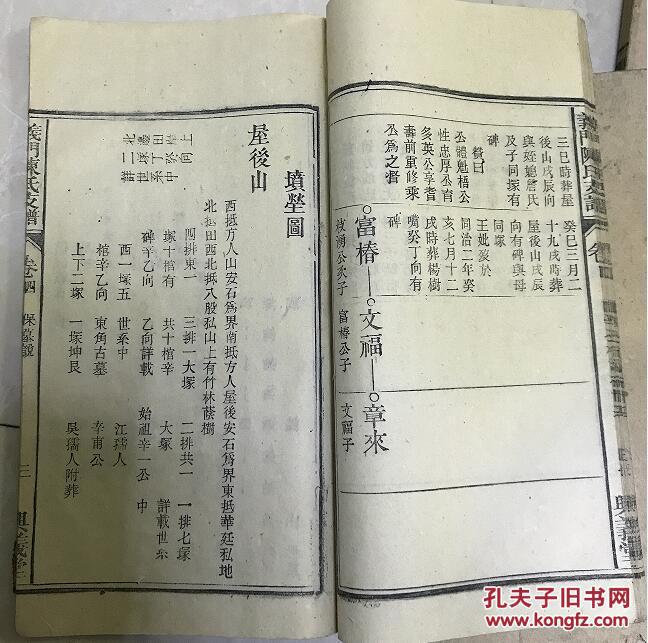 三巳時葬屋
後山戌辰向
與姪媳詹氏
及子同塚有
碑
贊曰
公體魁梧公
性忠厚公育
多英公享耆
壽前重修乘
公爲之督
癸巳三月二
十九戌時葬
屋後山戌辰
向有碑與母
同塚
王妣歿於
同治二年癸
亥七月十二
戌時葬楊樹
嘴癸丁向有
碑
富椿
文福
章來
枝湧公次子
富椿公子
文福子
墳塋圖
屋後山
西抵方人山安石爲界南抵方人屋後安石爲界東抵華廷私地
北抵田西北抵八股私山上有竹林蔭樹
上
向
中
北
四排東一
三排一大塚
二排共一
一排七塚
塚十棺有
共十棺辛
大塚
詳載世系
碑辛乙向
乙向詳載
始祖辛一公
中
酉一塚五
世系中
江孺人
棺辛乙向
東角古墓
辛甫公
上下二塚
一塚坤艮
吳孺人附葬
義門陳氏支譜
卷四
保墓說
二
孔夫子旧书网
www.kongfz.com